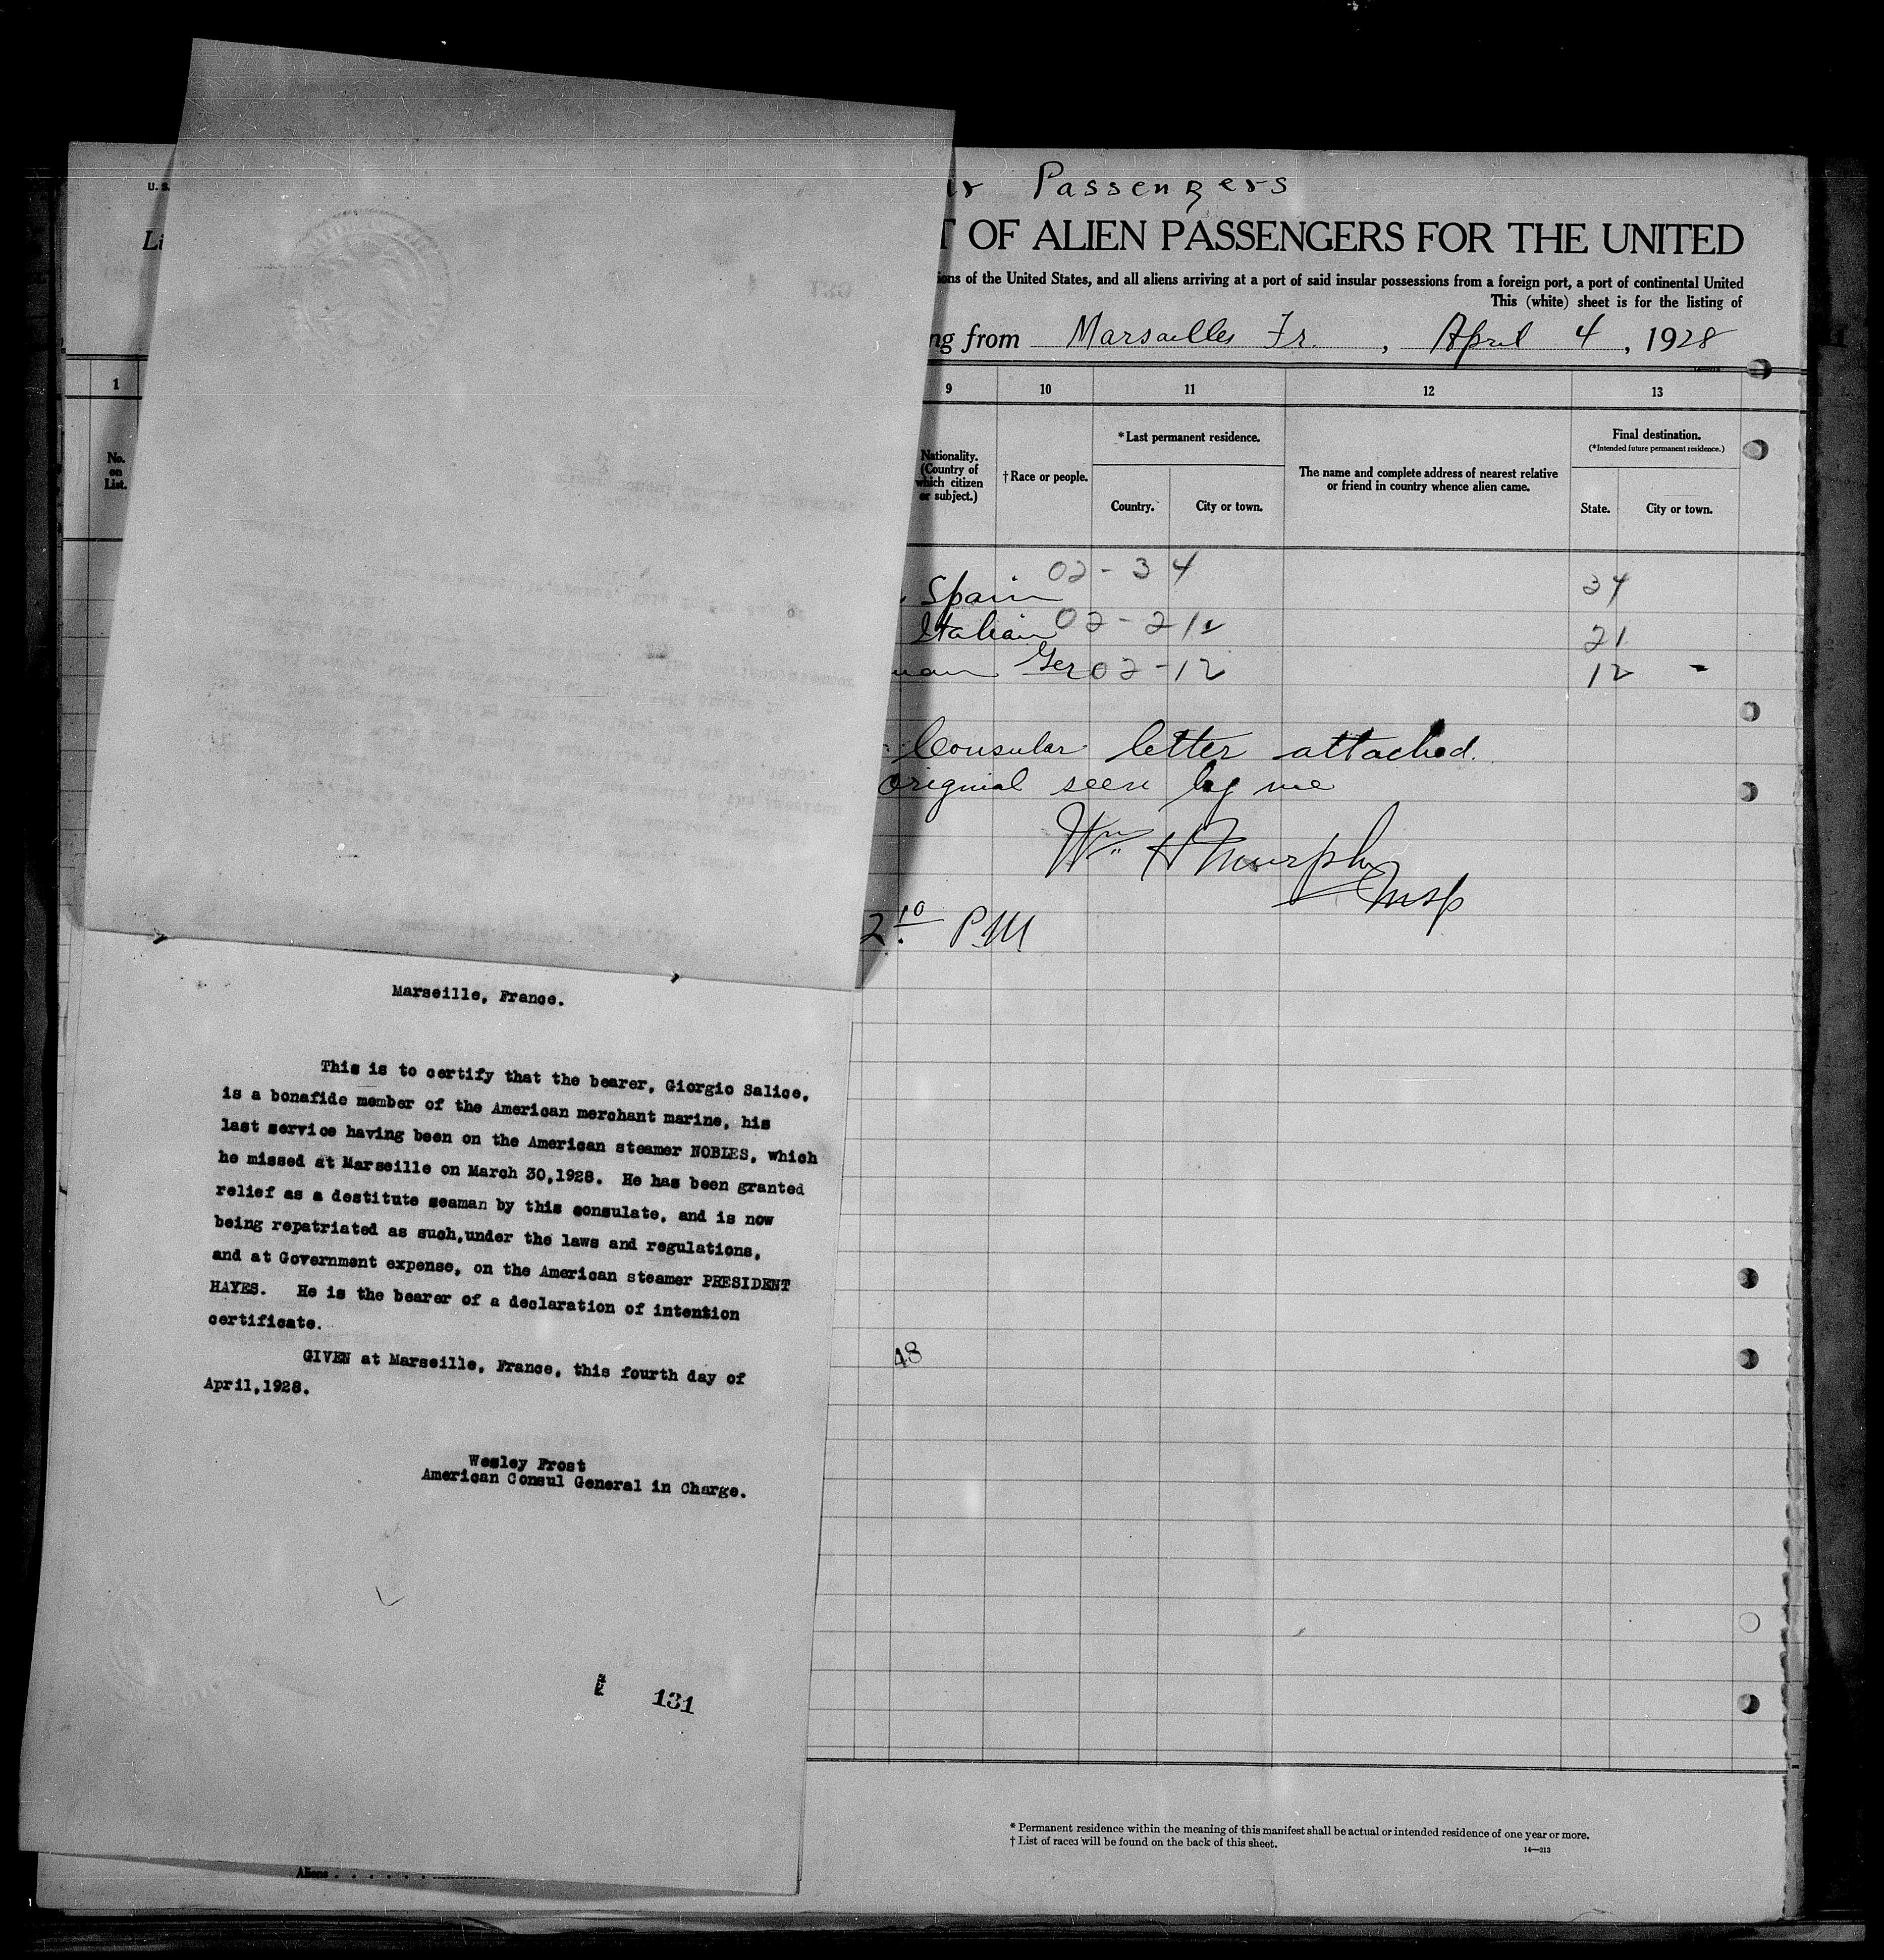 U. S.
Li
Passengers
T OF ALIEN PASSENGERS FOR THE UNITED
ions of the United States, and all aliens arriving at a port of said insular possessions from a foreign port, a port of continental United
This (white) sheet is for the listing of
ng from Marsailles Fr. , April 4 , 1928
1 9 10 11 12 13
No. on List.
Nationality. (Country of which citizen or subject.)
† Race or people.
* Last permanent residence.
Country. City or town.
The name and complete address of nearest relative or friend in country whence alien came.
Final destination.
(*Intended future permanent residence.)
State. City or town.
02 - 34
Spain 34
Italian 02 - 21 21
Ger 02 - 12 12 -
Consular letter attached.
Original seen by me
Wm H Murphy
Insp
2 10 PM
Marseille, France.
This is to certify that the bearer, Giorgio Salice,
is a bonafide member of the American merchant marine, his
last service having been on the American steamer NOBLES, which
he missed at Marseille on March 30,1928. He has been granted
relief as a destitute seaman by this consulate, and is now
being repatriated as such,under the laws and regulations,
and at Government expense, on the American steamer PRESIDENT
HAYES. He is the bearer of a declaration of intention
certificate.
GIVEN at Marseille, France, this fourth day of
April,1928.
48
Wesley Frost
American Consul General in Charge.
131
* Permanent residence within the meaning of this manifest shall be actual or intended residence of one year or more.
† List of races will be found on the back of this sheet.
14—213
Aliens . . . . . .